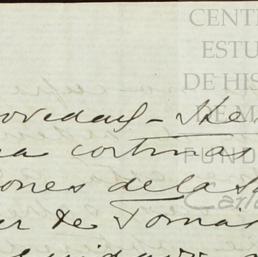 CENT
ESTU
DE HIS
DE M
FUND
Carlo
ovedad - He
na cortinas
ones de la S
ar de Tomás